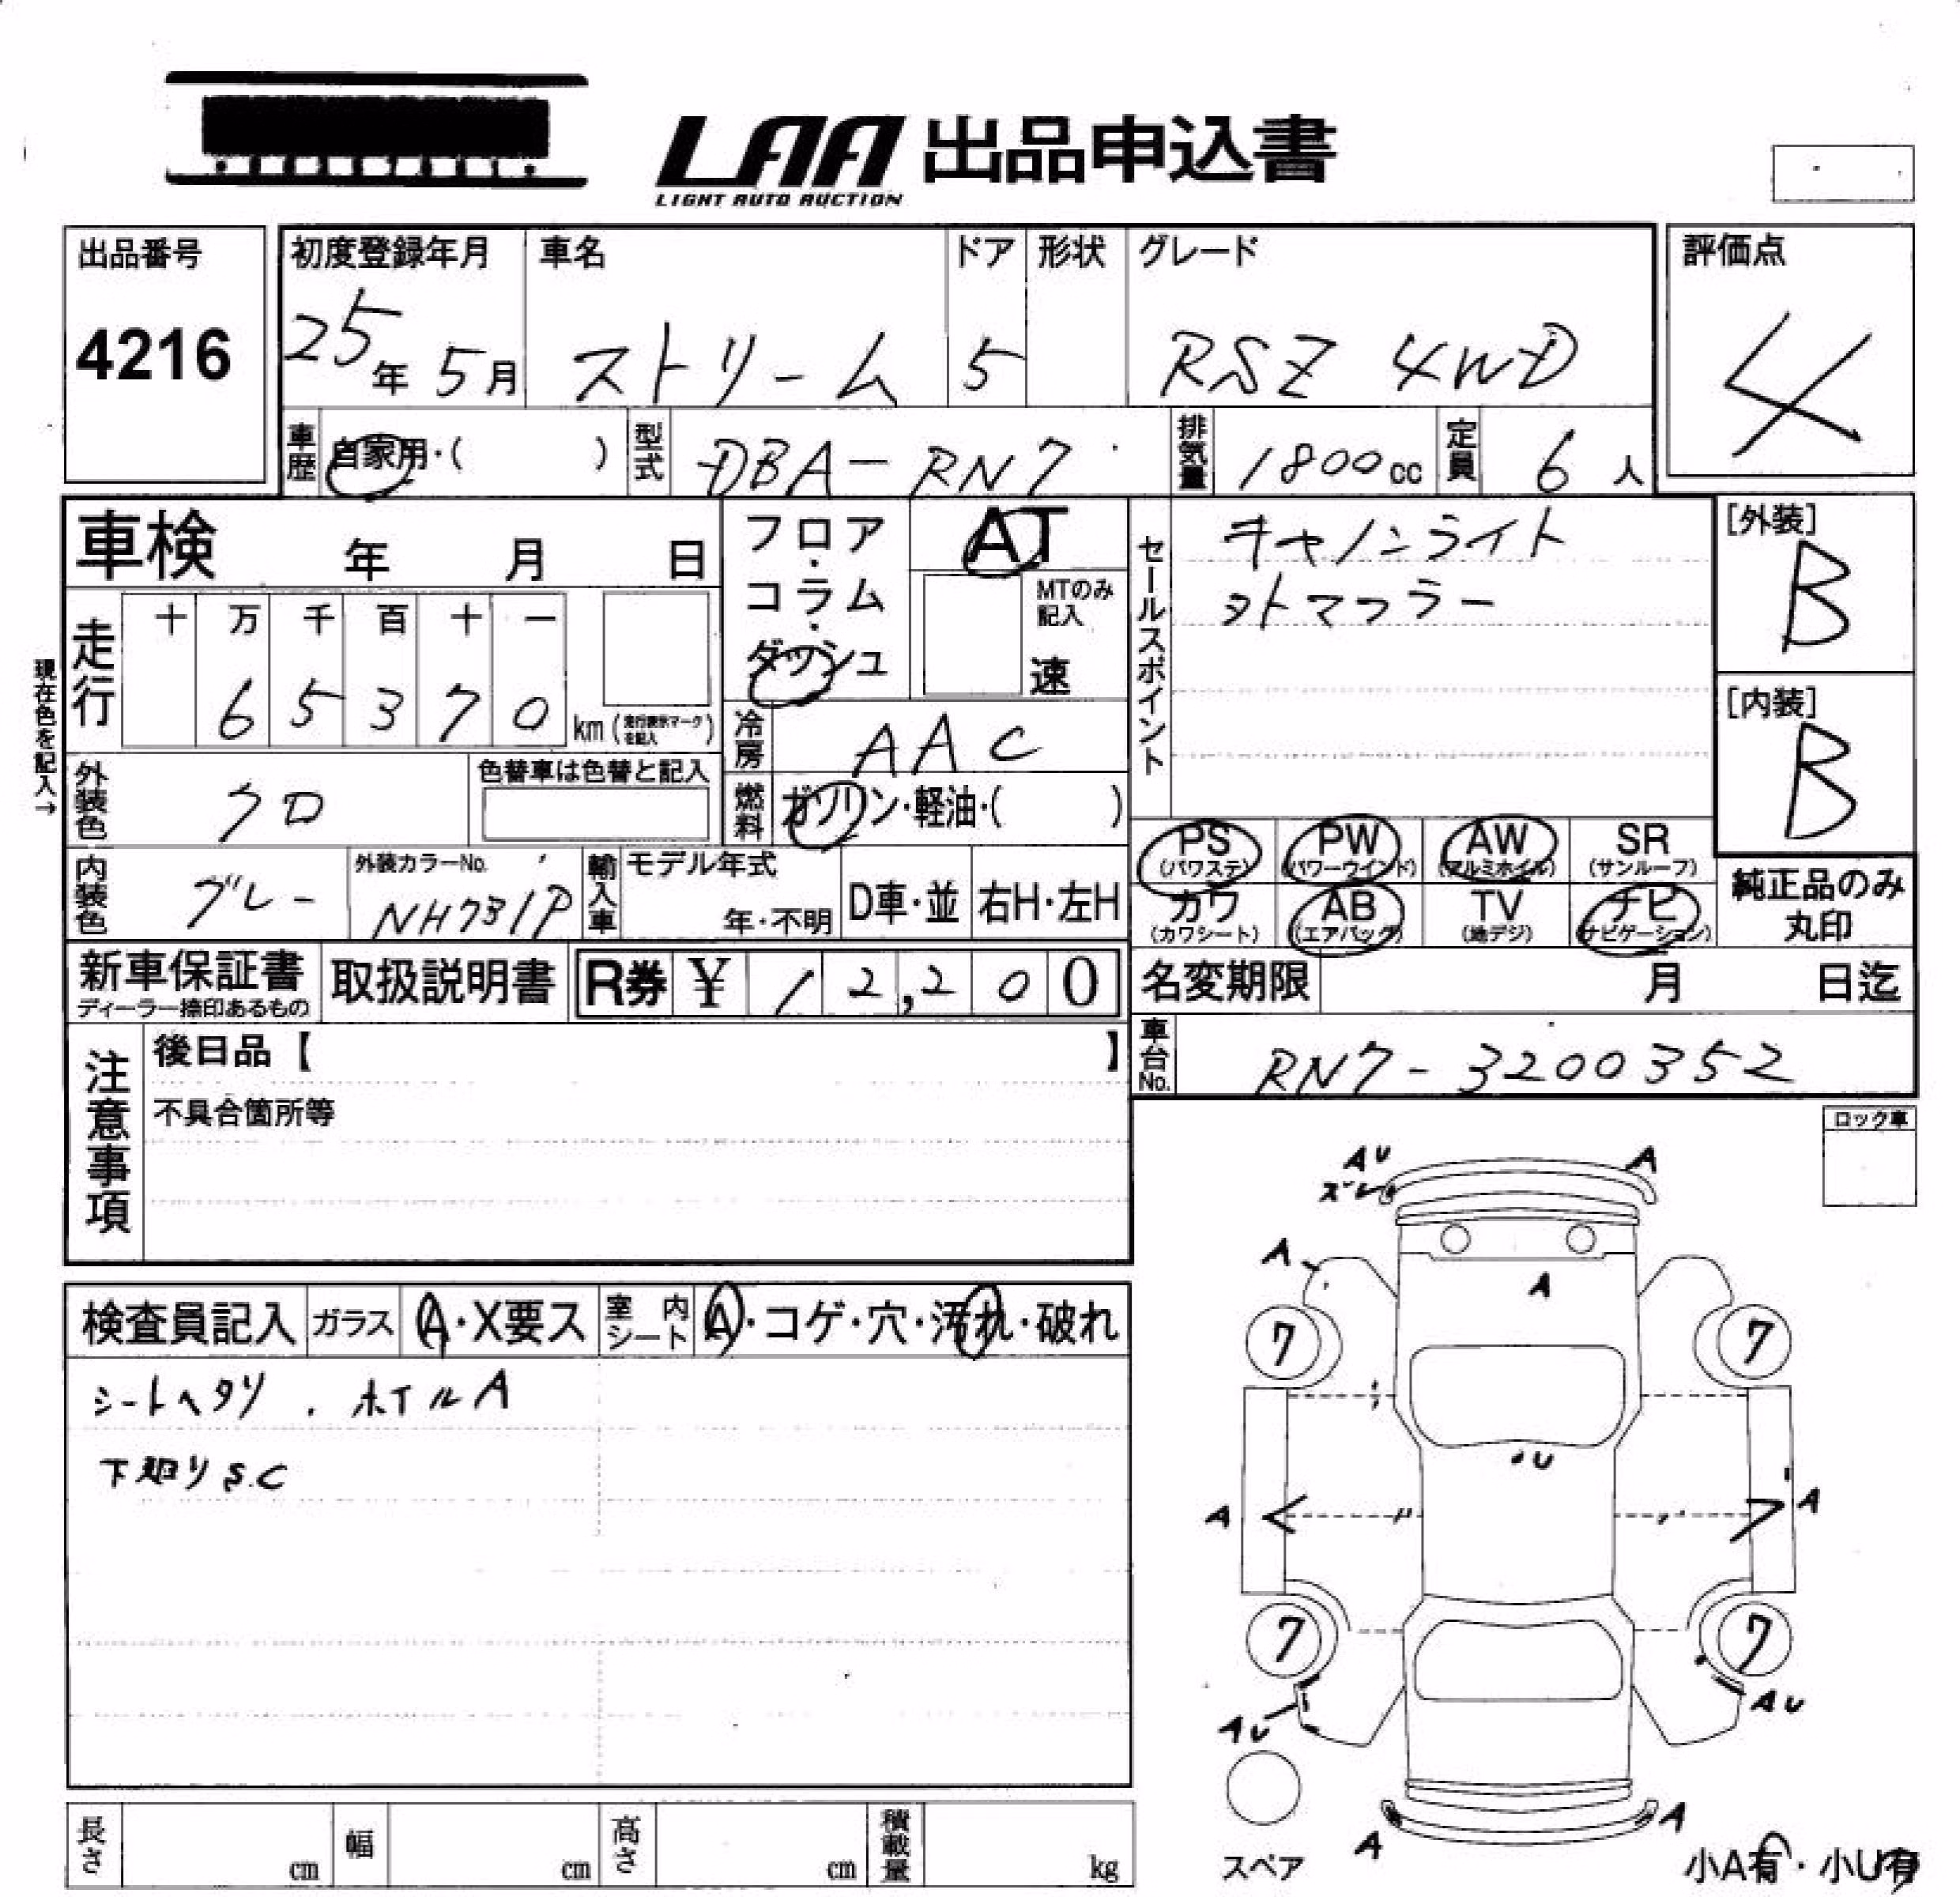 LAA 出品申込書
LIGHT AUTO AUCTION
出品番号
4216
初度登録年月
25年 5月
車名
ストリーム
ドア
5
形状
グレード
RSZ 4WD
評価点
4
車歴
自家用・( )
型式
DBA-RN7
排気量
1800cc
定員
6人
車検 年 月 日
フロア・コラム・ダッシュ
AT
MTのみ記入
速
セールスポイント
キャノンライト
外マフラー
[外装]
B
[内装]
B
現在色を記入→
走行
十 万 千 百 十 一
6 5 3 7 0 km (走行表示マークを記入)
冷房
AAC
外装色
クロ
色替車は色替と記入
燃料
ガソリン・軽油・( )
内装色
グレー
外装カラーNo.
NH731P
輸入車
モデル年式
年・不明
D車・並
右H・左H
PS (パワステ)
PW (パワーウインド)
AW (アルミホイル)
SR (サンルーフ)
カワ (カワシート)
AB (エアバック)
TV (地デジ)
ナビ (ナビゲーション)
純正品のみ丸印
新車保証書
ディーラー捺印あるもの
取扱説明書
R券 ¥ 12,200
名変期限 月 日迄
車台No.
RN7-3200352
注意事項
後日品【 】
不具合箇所等
ロック車
検査員記入
ガラス
A・X要ス
室内シート
A・コゲ・穴・汚れ・破れ
シートヘタリ . ホイルA
下廻りS.C
AU
ズレ
A
A
A
7
7
U
A
A
7
7
AU
AU
A
A
スペア
小A有・小U有
長さ cm
幅 cm
高さ cm
積載量 kg